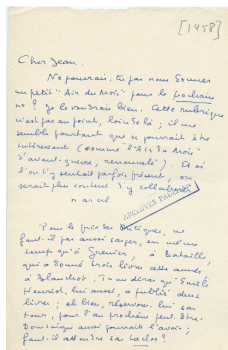 [1958]
Cher Jean,
Ne pourrais-tu pas nous donner
un petit "Air du Mois" pour le prochain
no ? Je le voudrais bien. Cette rubrique
n'est pas au point, loin de là ; il me
semble pourtant que ce pourrait être
intéressant (comme "l'Air du Mois"
d'avant-guerre, renouvelé). Et si
l'on t'y sentait parfois présent, on
serait plus content d'y collaborer
ARCHIVES PAULHAN
Pour le prix des Critiques, ne
faut-il pas aussi songer, en même
temps qu'à Grenier, à Bataille
qui a donné trois livres cette année,
à Blanchot. Tu me diras qu'Emile
Henriot, lui aussi, a publié deux
livres ; eh bien, réservons-lui son
tour, pour l'an prochain peut-être.
Dominique aussi pourrait l'avoir ;
faut-il attendre sa